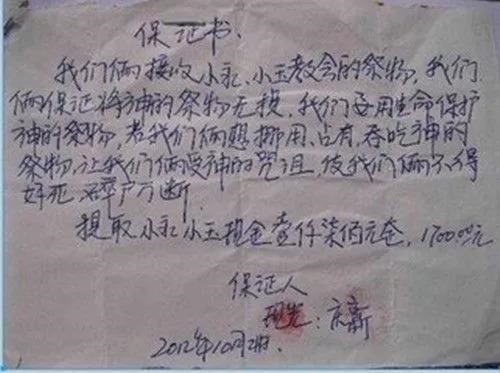 保证书.
我们俩接收小永、小玉教会的祭物,我们
俩保证将神的祭物无损,我们要用生命保护
神的祭物,若我们俩想挪用、占有、吞吃神的
祭物,让我们俩受神的咒诅,使我们俩不得
好死
提取小永小玉现金壹仟柒佰元全,1700.00元
保证人
:庆新
2012年10月